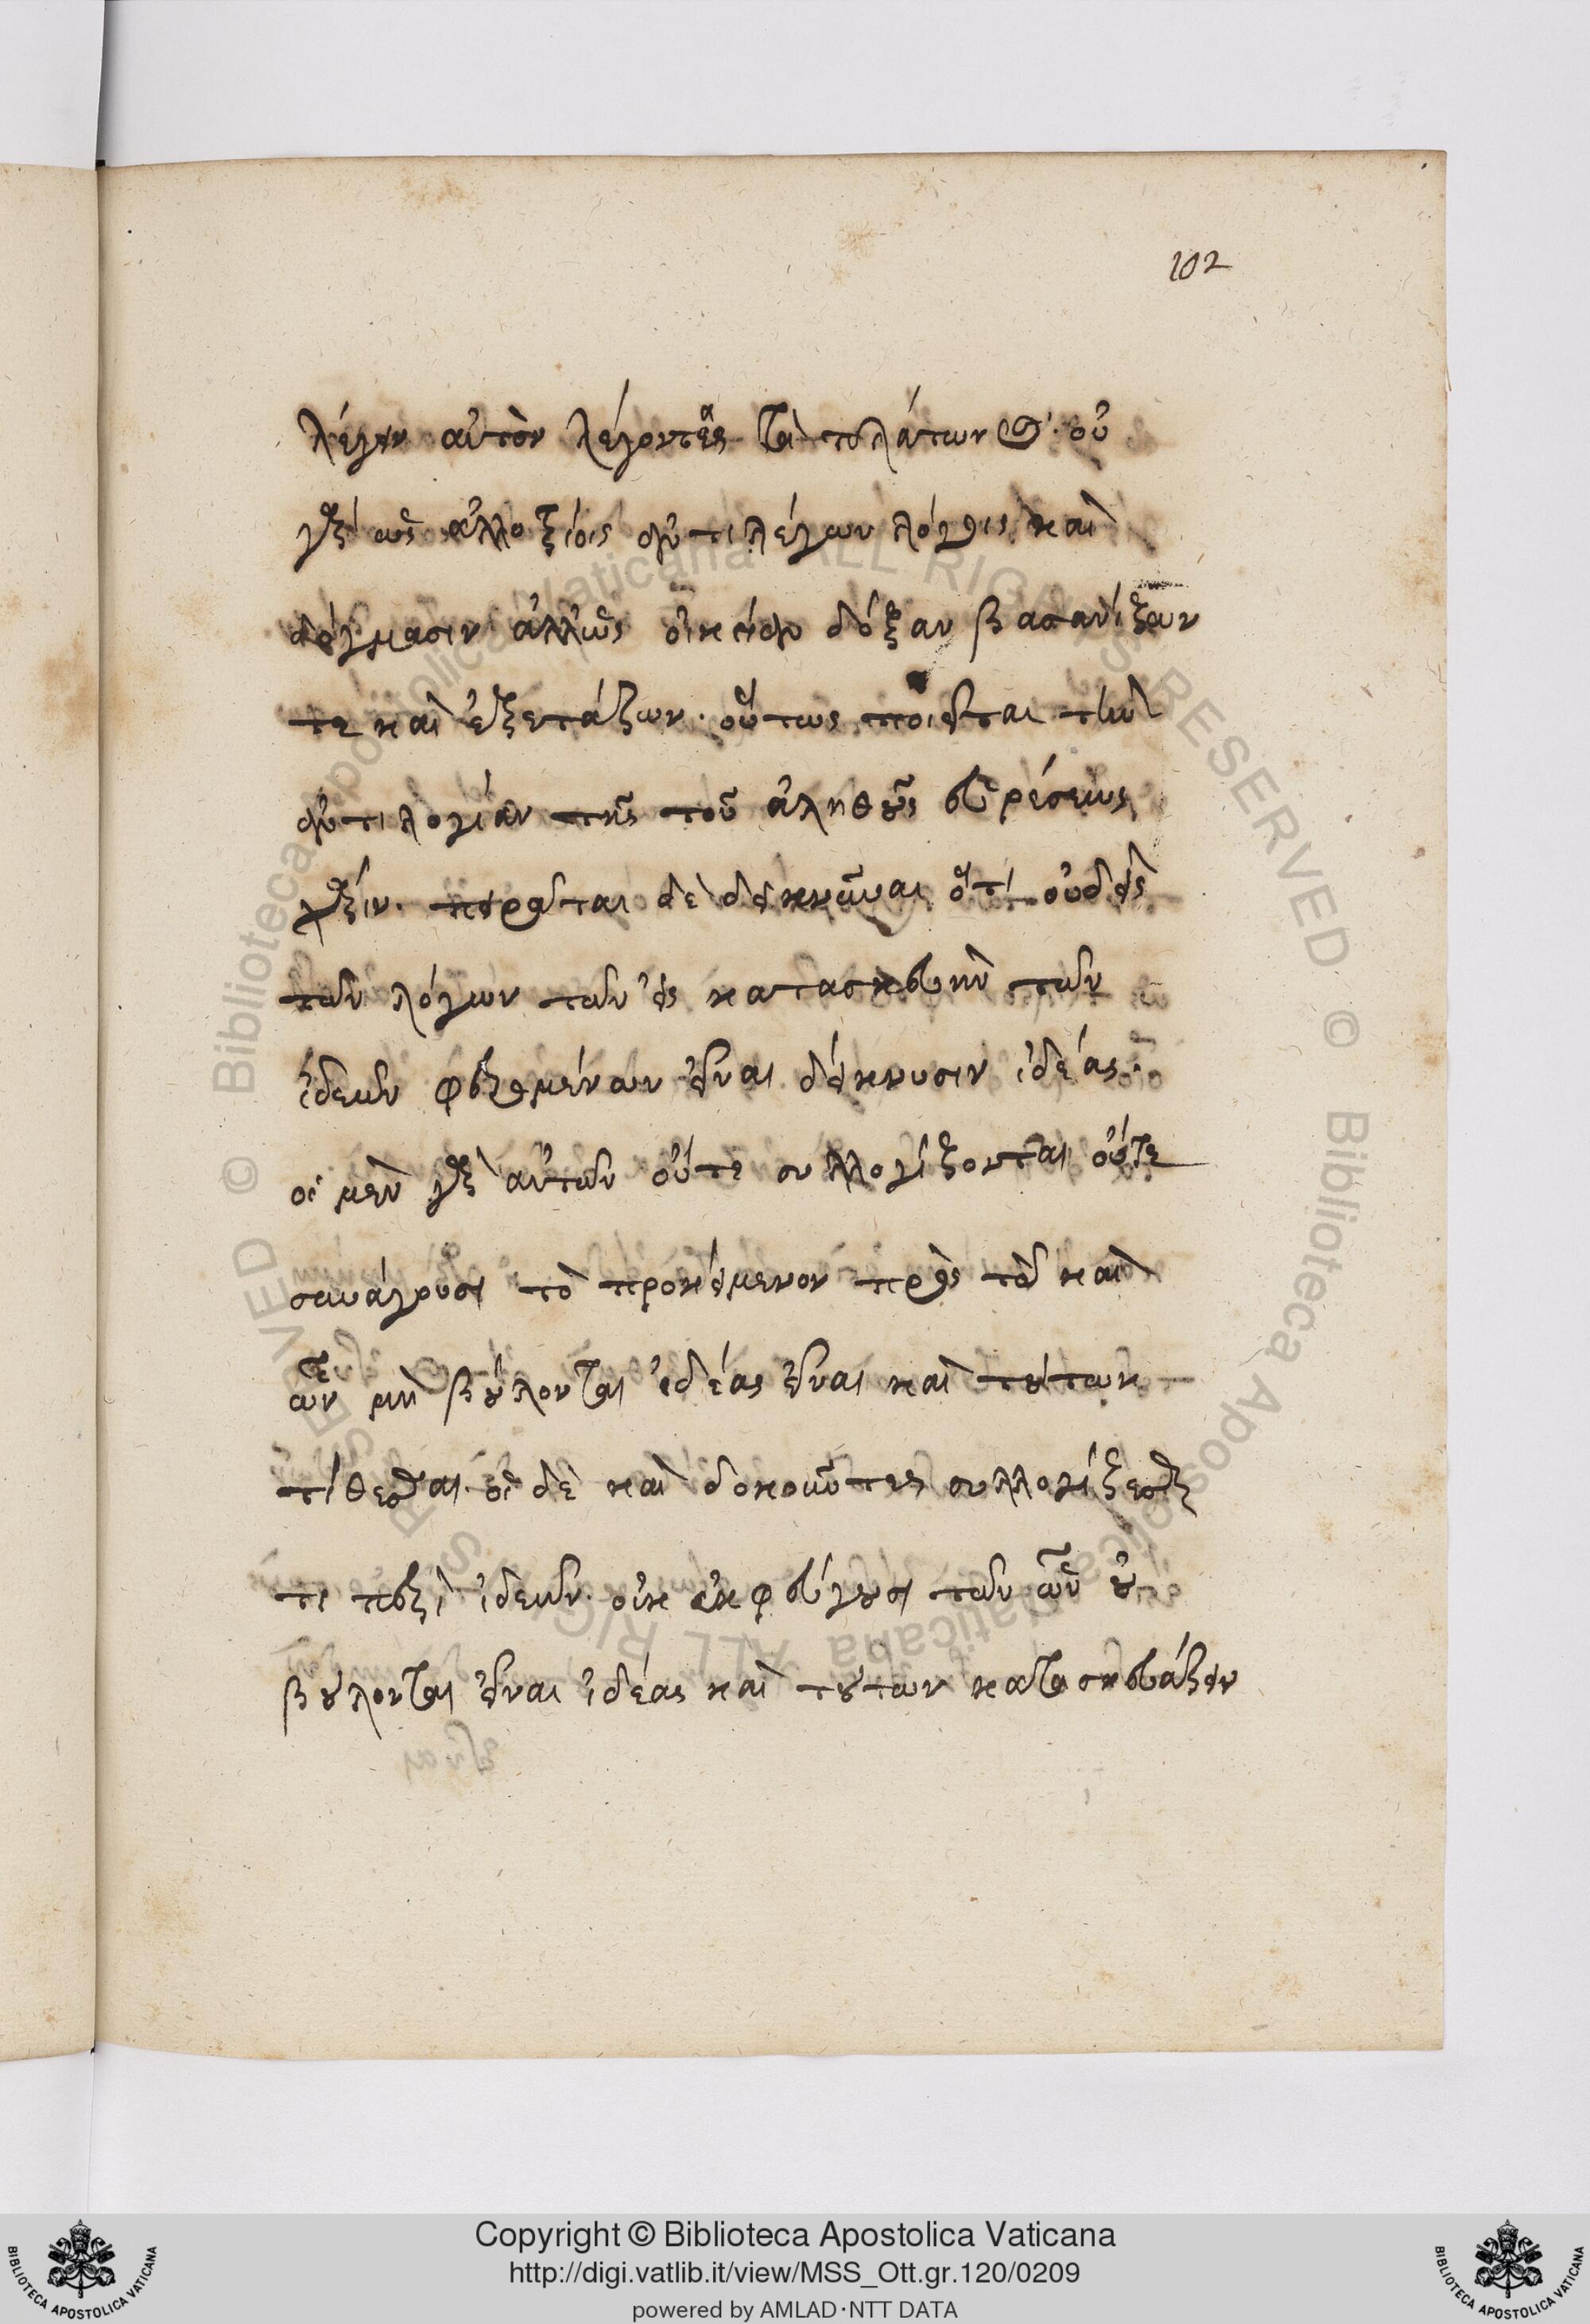 102
λέγειν αὐτὸν λέγοντας τὰ πλάτωνος. οὐ
γὰρ ὡς ἀλλοτρίοις ἀντιλέγων λόγοις καὶ
δόγμασιν ἀλλ' ὡς οἰκείαν δόξαν βασανίζων
τε καὶ ἐξετάζων. οὕτως ποιεῖται τὴν
ἀντιλογίαν τῆς τοῦ ἀληθοῦς εὑρέσεως
χάριν. πειρᾶται δὲ δεικνῦναι ὅτι οὐδεὶς
τῶν λόγων τῶν εἰς κατασκευὴν τῶν
ἰδεῶν φερομένων εἶναι δείκνυσιν ἰδέας.
οἱ μὲν γὰρ αὐτῶν οὔτε συλλογίζονται οὔτε
συνάγουσι τὸ προκείμενον πρὸς τῶ καὶ
ὧν τε μὴ βούλονται ἰδέας εἶναι καὶ τούτων
τίθεσθαι. οἱ δὲ καὶ δοκοῦντες συλλογίζεσθαι
τι περὶ ἰδεῶν. οὐκ ἐκφεύγουσι τῶν ὧν οὐ
βούλονται εἶναι ἰδέας καὶ τούτων κατασκευάζειν
Copyright © Biblioteca Apostolica Vaticana
http://digi.vatlib.it/view/MSS_Ott.gr.120/0209
powered by AMLAD·NTT DATA